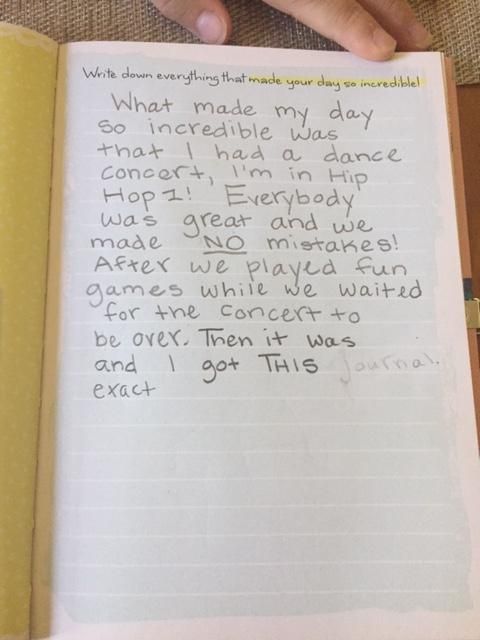 Write down everything that made your day so incredible!
What made my day
so incredible was
that I had a dance
concert, I'm in Hip
Hop 1! Everybody
was great and we
made NO mistakes!
After we played fun
games while we waited
for the concert to
be over. Then it was
and I got THIS journal.
exact